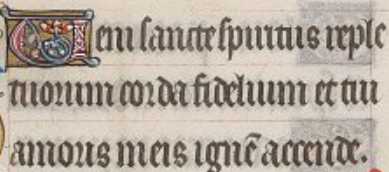 Veni sancte spiritus reple
tuorum corda fidelium et tui
amoris in eis ignē accende.